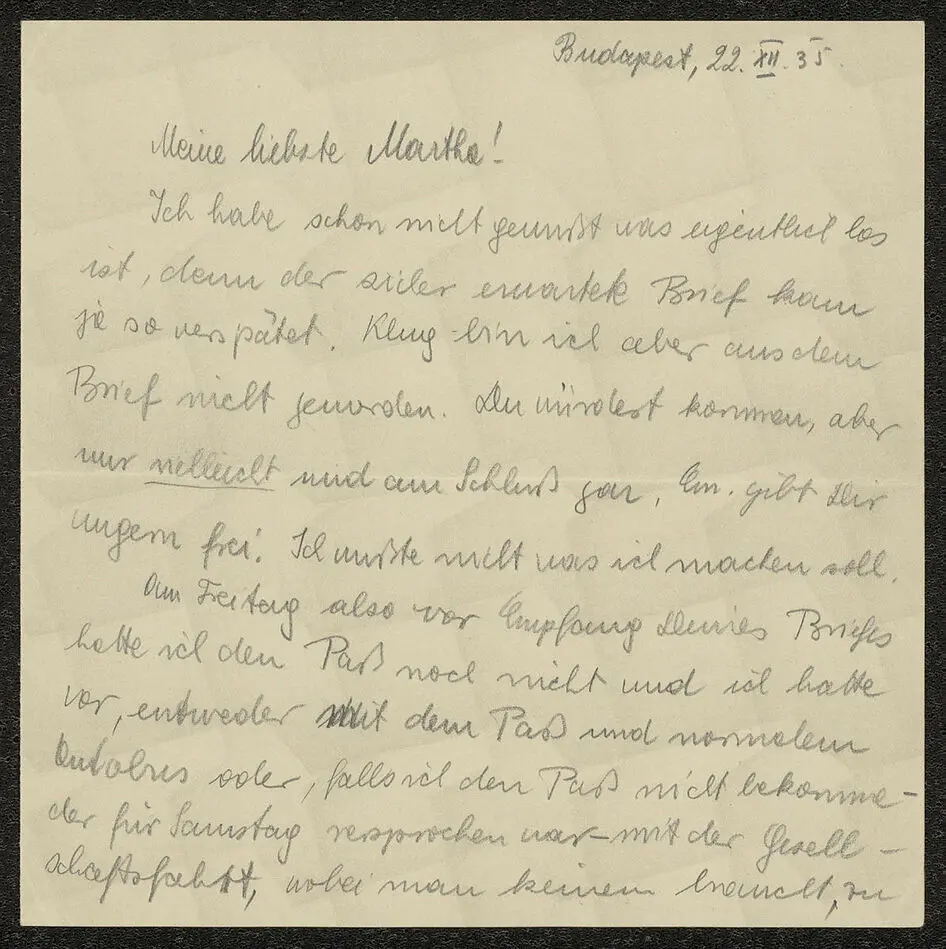 Budapest, 22. XII. 35.
Meine liebste Martha!
Ich habe schon nicht gewußt was eigentlich los
ist, denn der sicher erwartete Brief kam
ja so verspätet. Klug bin ich aber aus dem
Brief nicht geworden. Du würdest kommen, aber
nur vielleicht und am Schluß gar, Em. gibt Dir
ungern frei. Ich wußte nicht was ich machen soll.
Am Freitag also vor Empfang Deines Briefes
hatte ich den Paß noch nicht und ich hatte
vor, entweder mit dem Paß und normalem
Autobus oder, falls ich den Paß nicht bekomme –
der für Samstag versprochen war – mit der Gesell-
schaftsfahrt, wobei man keinen braucht, zu